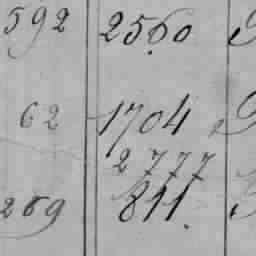 592 2560
62 1704
2777
269 811.